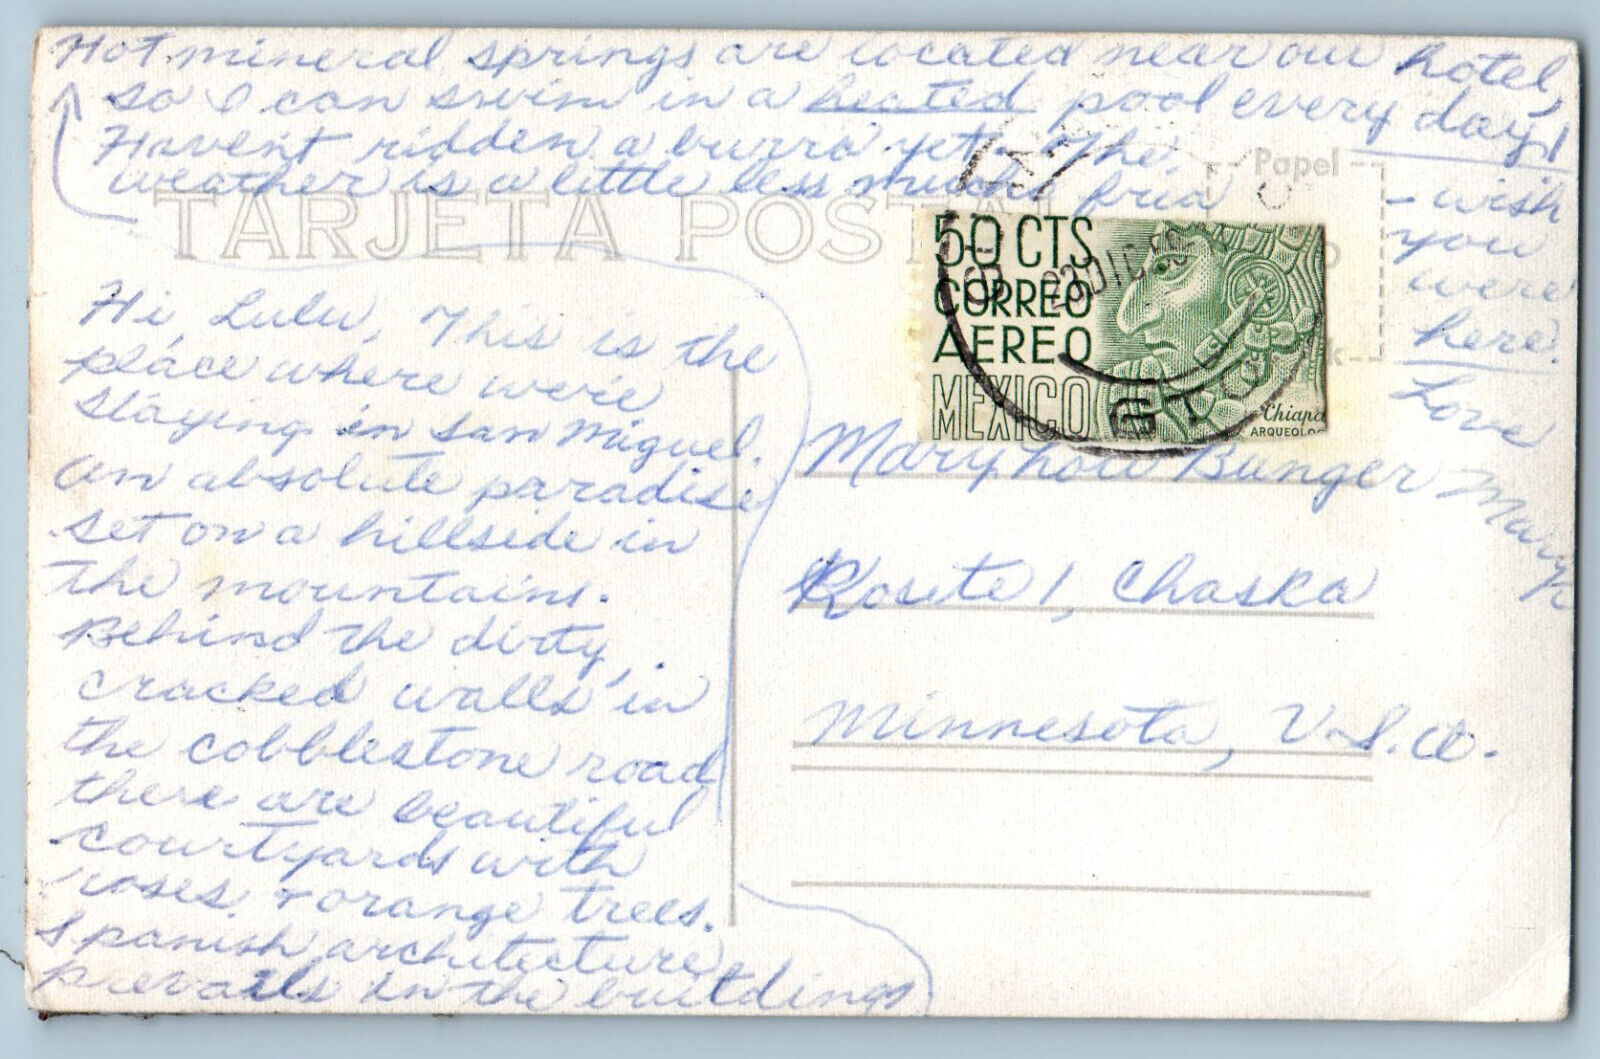 Hot mineral springs are located near our hotel,
so I can swim in a heated pool every day!
Haven't ridden a burro yet. The
weather is a little less mucho frio
- wish
you
were
here.
Love
Mary
TARJETA POSTAL
Papel
k
50 CTS
CORREO
AEREO
MEXICO
Chiapa
ARQUEOLOG
23 DIC
GTO
Hi, Lulu, This is the
place where we're
staying in San Miguel.
An absolute paradise
set on a hillside in
the mountains.
Behind the dirty,
cracked walls in
the cobblestone road
there are beautiful
courtyards with
roses & orange trees.
Spanish architecture
prevails in the buildings
Mary Lou Bunger
Route 1, Chaska
Minnesota, U.S.A.